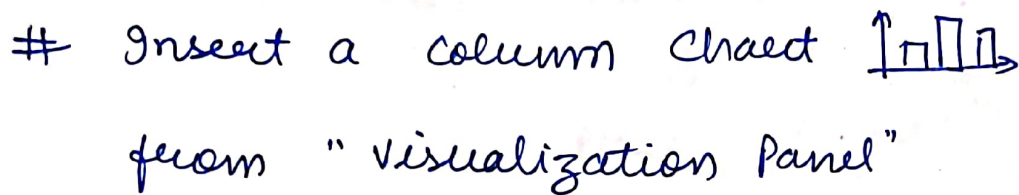 # Insert a column chart
from "visualization Panel"